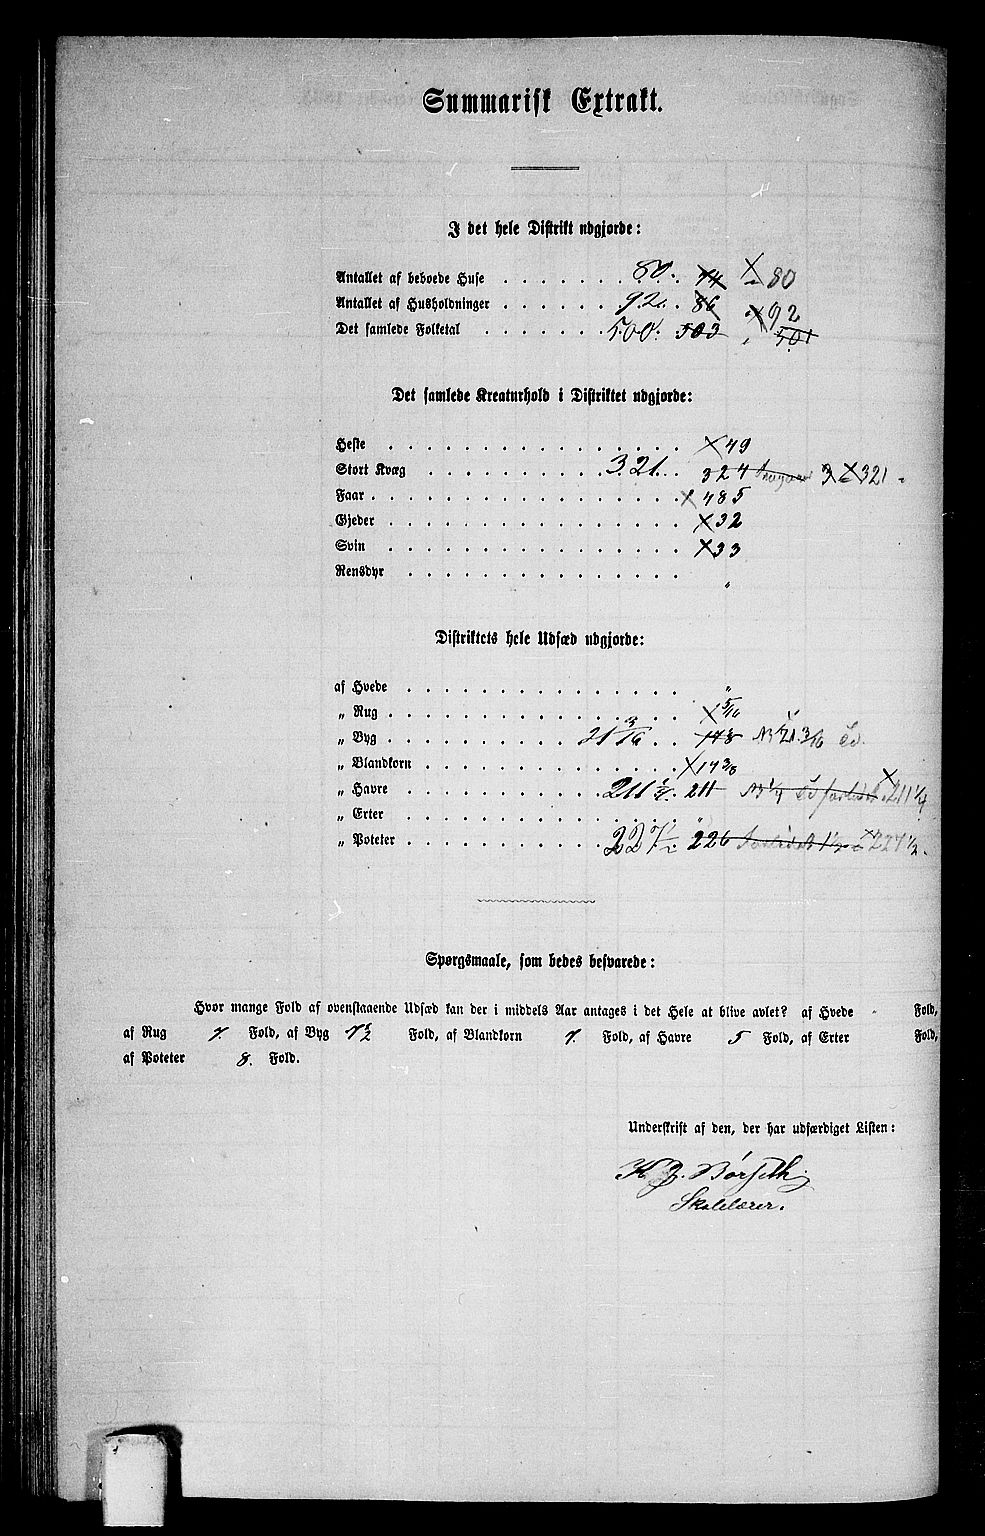 Summarisk Extrakt.
I det hele Distrikt udgjorde:
Antallet af beboede Huse . . . . . . . 80. 74 " 80
Antallet af Husholdninger . . . . . . . 92. 86 " 92
Det samlede Folketal . . . . . . . 500. 503 " 501
Det samlede Kreaturhold i Distriktet udgjorde:
Heste . . . . . . . 49
Stort Kvæg . . . . . . . 321. 324 3 321
Faar . . . . . . . 485
Gjeder . . . . . . . 32
Svin . . . . . . . 33
Rensdyr . . . . . . . "
Distriktets hele Udsæd udgjorde:
af Hvede . . . . . . . "
„ Rug . . . . . . . 5/16
„ Byg . . . . . . . 21 3/16 148 21 3/16
„ Blandkorn . . . . . . . 14 3/8
„ Havre . . . . . . . 211 1/4. 211 211 1/4
„ Erter . . . . . . . "
„ Poteter . . . . . . . 227 1/2 226 1 1/2 227 1/2.
Spørgsmaale, som bedes besvarede:
Hvor mange Fold af ovenstaaende Udsæd kan der i middels Aar antages i det Hele at blive avlet? af Hvede " Fold,
af Rug 7. Fold, af Byg Fold, af Blandkorn 7. Fold, af Havre 5 Fold, af Erter Fold,
af Poteter 8. Fold.
Underskrift af den, der har udfærdiget Listen:
Børseth
Skolelærer.